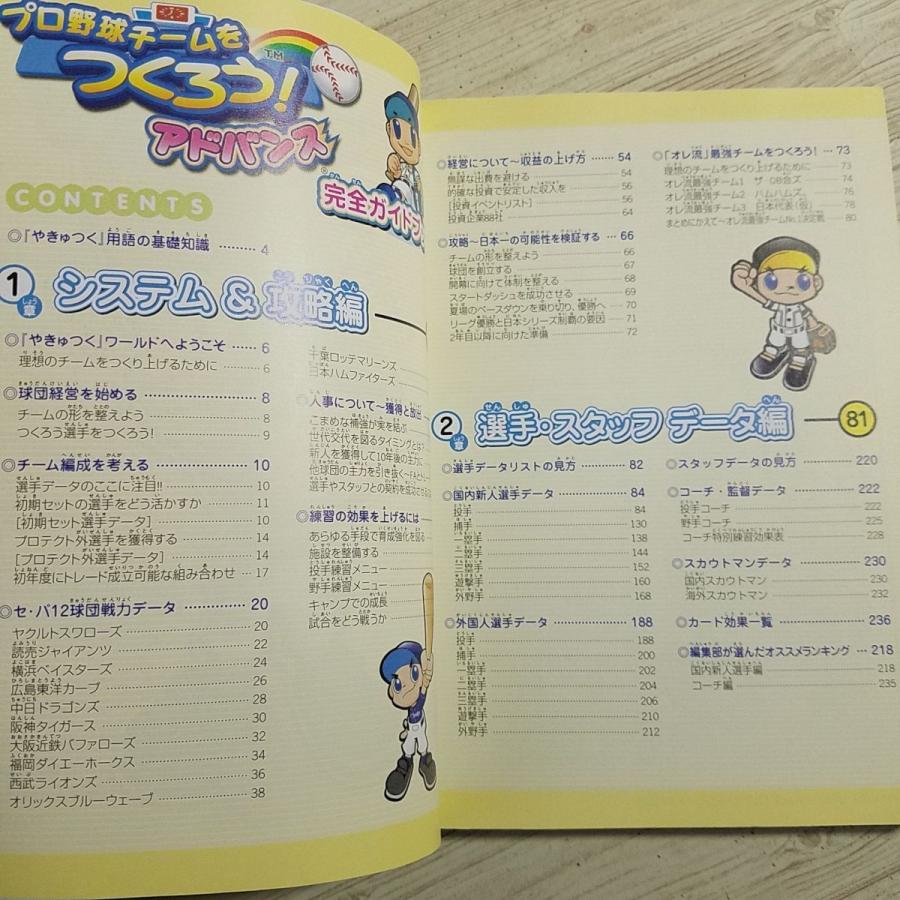 プロ野球チームを
つくろう!
TM
アドバンス
完全ガイドブ
CONTENTS
◎「やきゅつく」用語の基礎知識 ……… 4
1章 システム & 攻略編
◎「やきゅつく」ワールドへようこそ …… 6
理想のチームをつくり上げるために …… 6
◎球団経営を始める …… 8
チームの形を整えよう …… 8
つくろう選手をつくろう! …… 9
◎チーム編成を考える …… 10
選手データのここに注目!! …… 10
初期セットの選手をどう活かすか …… 11
[初期セット選手データ] …… 10
プロテクト外選手を獲得する …… 14
[プロテクト外選手データ] …… 14
初年度にトレード成立可能な組み合わせ …… 17
◎セ・パ12球団戦力データ …… 20
ヤクルトスワローズ …… 20
読売ジャイアンツ …… 22
横浜ベイスターズ …… 24
広島東洋カープ …… 26
中日ドラゴンズ …… 28
阪神タイガース …… 30
大阪近鉄バファローズ …… 32
福岡ダイエーホークス …… 34
西武ライオンズ …… 36
オリックスブルーウェーブ …… 38
千葉ロッテマリーンズ
日本ハムファイターズ
◎人事について〜獲得と放出
こまめな補強が実を結ぶ
世代交代を図るタイミングとは?
新人を獲得して10年後の主力に
他球団の主力を引き抜く〜FAとトレ
選手やスタッフとの契約を成功させる
◎練習の効果を上げるには
あらゆる手段で育成強化を図る
施設を整備する
投手練習メニュー
野手練習メニュー
キャンプでの成長
試合をどう戦うか
◎経営について〜収益の上げ方 …… 54
無謀な出費を避ける …… 54
的確な投資で安定した収入を …… 56
[投資イベントリスト] …… 56
投資企業88社 …… 64
◎攻略〜日本一の可能性を検証する …… 66
チームの形を整えよう …… 66
球団を創立する …… 67
開幕に向けて体制を整える …… 68
スタートダッシュを成功させる …… 69
夏場のペースダウンを乗り切り、優勝へ …… 70
リーグ優勝と日本シリーズ制覇の要因 …… 71
2年目以降に向けた準備 …… 72
◎「オレ流」最強チームをつくろう! … 73
理想のチームをつくり上げるために …… 73
オレ流最強チーム1 ザ OB会ズ …… 74
オレ流最強チーム2 ハムハムズ …… 76
オレ流最強チーム3 日本代表(仮) …… 78
まとめにかえて〜オレ流最強チームNo.1決定戦 …… 80
2章 選手・スタッフ データ編 81
◎選手データリストの見方 …… 82
◎国内新人選手データ …… 84
投手 …… 84
捕手 …… 130
一塁手 …… 138
二塁手 …… 144
三塁手 …… 152
遊撃手 …… 160
外野手 …… 168
◎外国人選手データ …… 188
投手 …… 188
捕手 …… 200
一塁手 …… 202
二塁手 …… 204
三塁手 …… 206
遊撃手 …… 210
外野手 …… 212
◎スタッフデータの見方 …… 220
◎コーチ・監督データ …… 222
投手コーチ …… 222
野手コーチ …… 225
コーチ特別練習効果表 …… 228
◎スカウトマンデータ …… 230
国内スカウトマン …… 230
海外スカウトマン …… 232
◎カード効果一覧 …… 236
◎編集部が選んだオススメランキング … 218
国内新人選手編 …… 218
コーチ編 …… 235